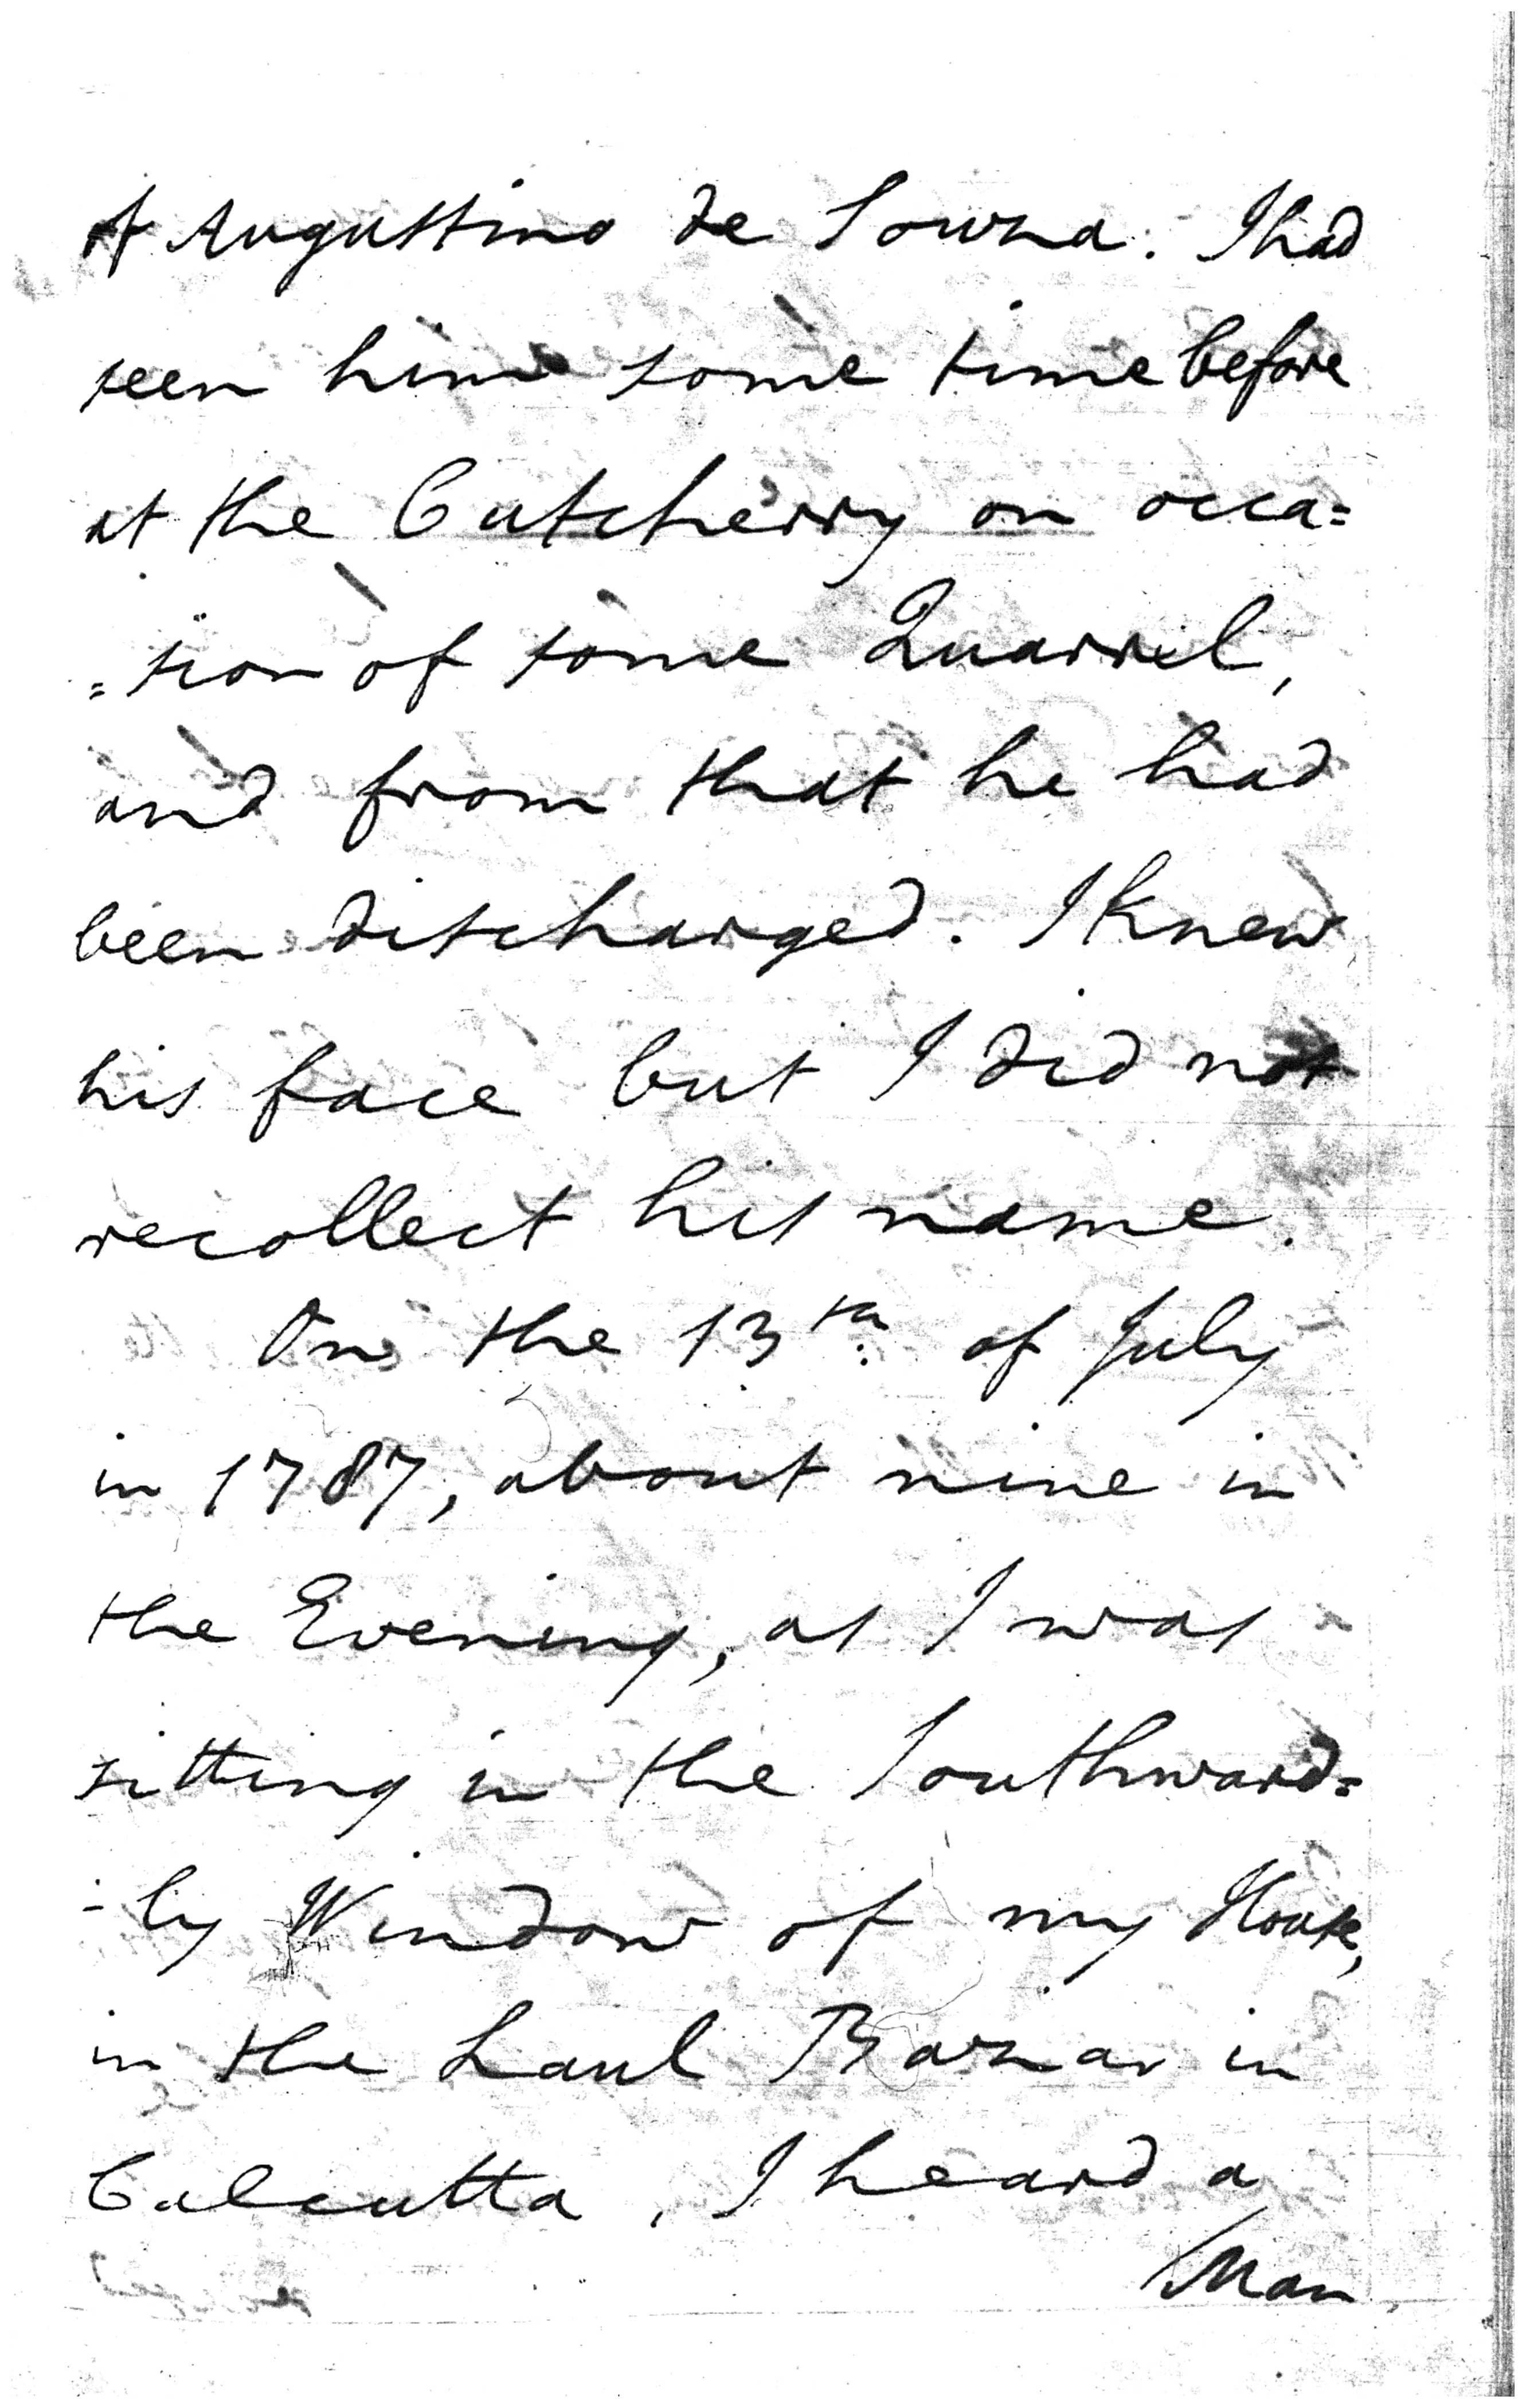 of Augustino de Souza. I had
seen him some time before
at the Cutcherry on occa=
=sion of some Quarrel,
and from that he had
been discharged. I knew
his face but I did not
recollect his name.
On the 13th. of July
in 1787, about nine in
the Evening, as I was
sitting in the Southward=
-ly Window of my House,
in the Laul Bazar in
Calcutta, I heard a
Man